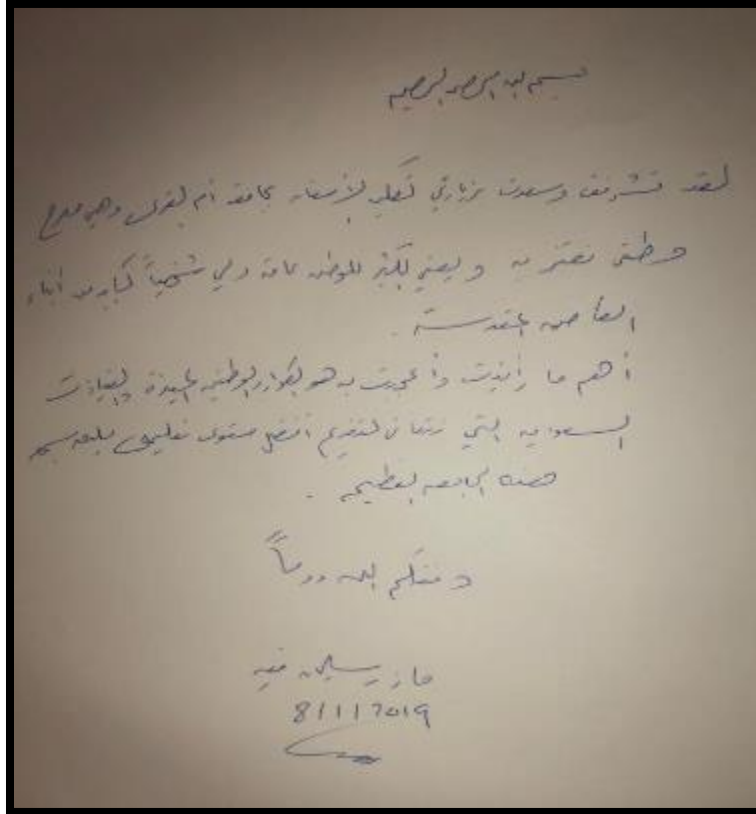 بسم الله الرحمن الرحيم
لقد تشرفت وسعدت بزيارتي لكلية الأسنان بجامعة أم القرى وهي صرح
وطني نعتز به ويعني الكثير للوطن عامة ولي شخصياً كأبن من أبناء
العاصمة المقدسة.
أهم ما رأيت وأعجبت به هو الكوادر الوطنية المميزة والقيادات
السعودية التي تتفانى لتقديم أفضل مستوى تعليمي يليق بسم
هذه الجامعة العظيمة.
وفقكم الله دوماً
مازن سليمان فقيه
8/1/2019